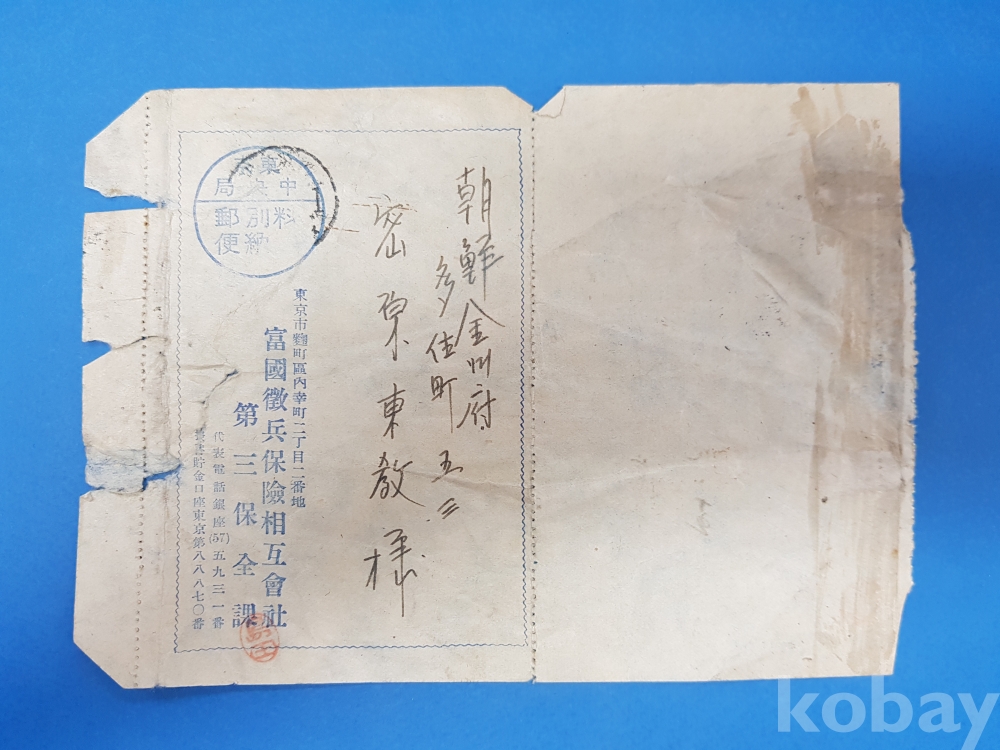 朝鮮全州府
多佳町五三
密原東教様
東京市麴町區內幸町二丁目二番地
富國徵兵保險相互會社
第三保全課
代表電話銀座(57)五九三一番
振替貯金口座東京第八八八七〇番
東京
中央局
料別納
郵便
kobay